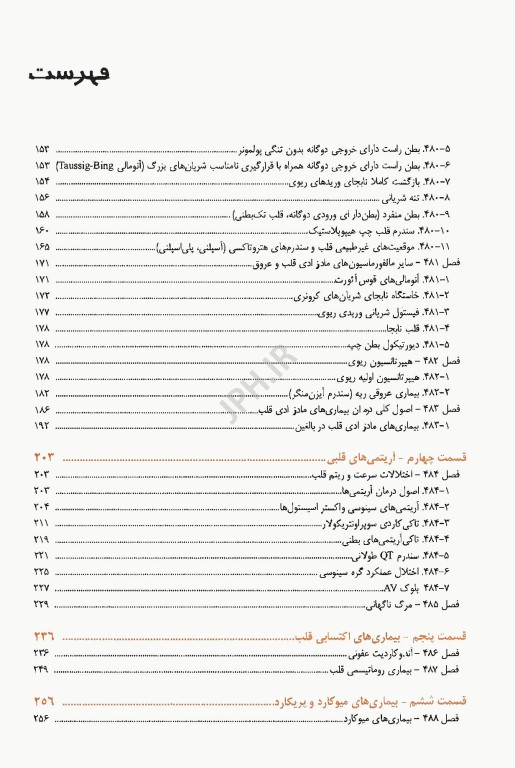 فهرست
۴۸۰-۵. بطن راست دارای خروجی دوگانه بدون تنگی پولمونر ۱۵۳
۴۸۰-۶. بطن راست دارای خروجی دوگانه همراه با قرارگیری نامناسب شریان‌های بزرگ (آنومالی Taussig-Bing) ۱۵۳
۴۸۰-۷. بازگشت کاملا نابجای وریدهای ریوی ۱۵۴
۴۸۰-۸. تنه شریانی ۱۵۶
۴۸۰-۹. بطن منفرد (بطن‌دار ای ورودی دوگانه، قلب تک‌بطنی) ۱۵۸
۴۸۰-۱۰. سندرم قلب چپ هیپوپلاستیک ۱۶۰
۴۸۰-۱۱. موقعیت‌های غیرطبیعی قلب و سندرم‌های هتروتاکسی (آسپلنی، پلی‌اسپلنی) ۱۶۵
فصل ۴۸۱ - سایر مالفورماسیون‌های مادرز ادی قلب و عروق ۱۷۱
۴۸۱-۱. آنومالی‌های قوس آئورت ۱۷۱
۴۸۱-۲. خاستگاه نابجای شریان‌های کرونری ۱۷۲
۴۸۱-۳. فیستول شریانی وریدی ریوی ۱۷۷
۴۸۱-۴. قلب نابجا ۱۷۸
۴۸۱-۵. دیورتیکول بطن چپ ۱۷۸
فصل ۴۸۲ - هیپرتانسیون ریوی ۱۷۸
۴۸۲-۱. هیپرتانسیون اولیه ریوی ۱۷۸
۴۸۲-۲. بیماری عروقی ریه (سندرم آیزن‌منگر) ۱۸۲
فصل ۴۸۳ - اصول کلی درمان بیماری‌های مادرز ادی قلب ۱۸۶
۴۸۳-۱. بیماری‌های مادرز ادی قلب در بالغین ۱۹۲
قسمت چهارم - آریتمی‌های قلبی ۲۰۳
فصل ۴۸۴ - اختلالات سرعت و ریتم قلب ۲۰۳
۴۸۴-۱. اصول درمان آریتمی‌ها ۲۰۳
۴۸۴-۲. آریتمی‌های سینوسی واکستر اسیستول‌ها ۲۰۴
۴۸۴-۳. تاکی‌کاردی سوپراونتریکولار ۲۱۱
۴۸۴-۴. تاکی‌آریتمی‌های بطنی ۲۱۹
۴۸۴-۵. سندرم QT طولانی ۲۲۱
۴۸۴-۶. اختلال عملکرد گره سینوسی ۲۲۵
۴۸۴-۷. بلوک AV ۲۲۷
فصل ۴۸۵ - مرگ ناگهانی ۲۲۹
قسمت پنجم - بیماری‌های اکتسابی قلب ۲۳۶
فصل ۴۸۶ - آندوکاردیت عفونی ۲۳۶
فصل ۴۸۷ - بیماری روماتیسمی قلب ۲۴۹
قسمت ششم - بیماری‌های میوکارد و پریکارد ۲۵۶
فصل ۴۸۸ - بیماری‌های میوکارد ۲۵۶
JPH.IR